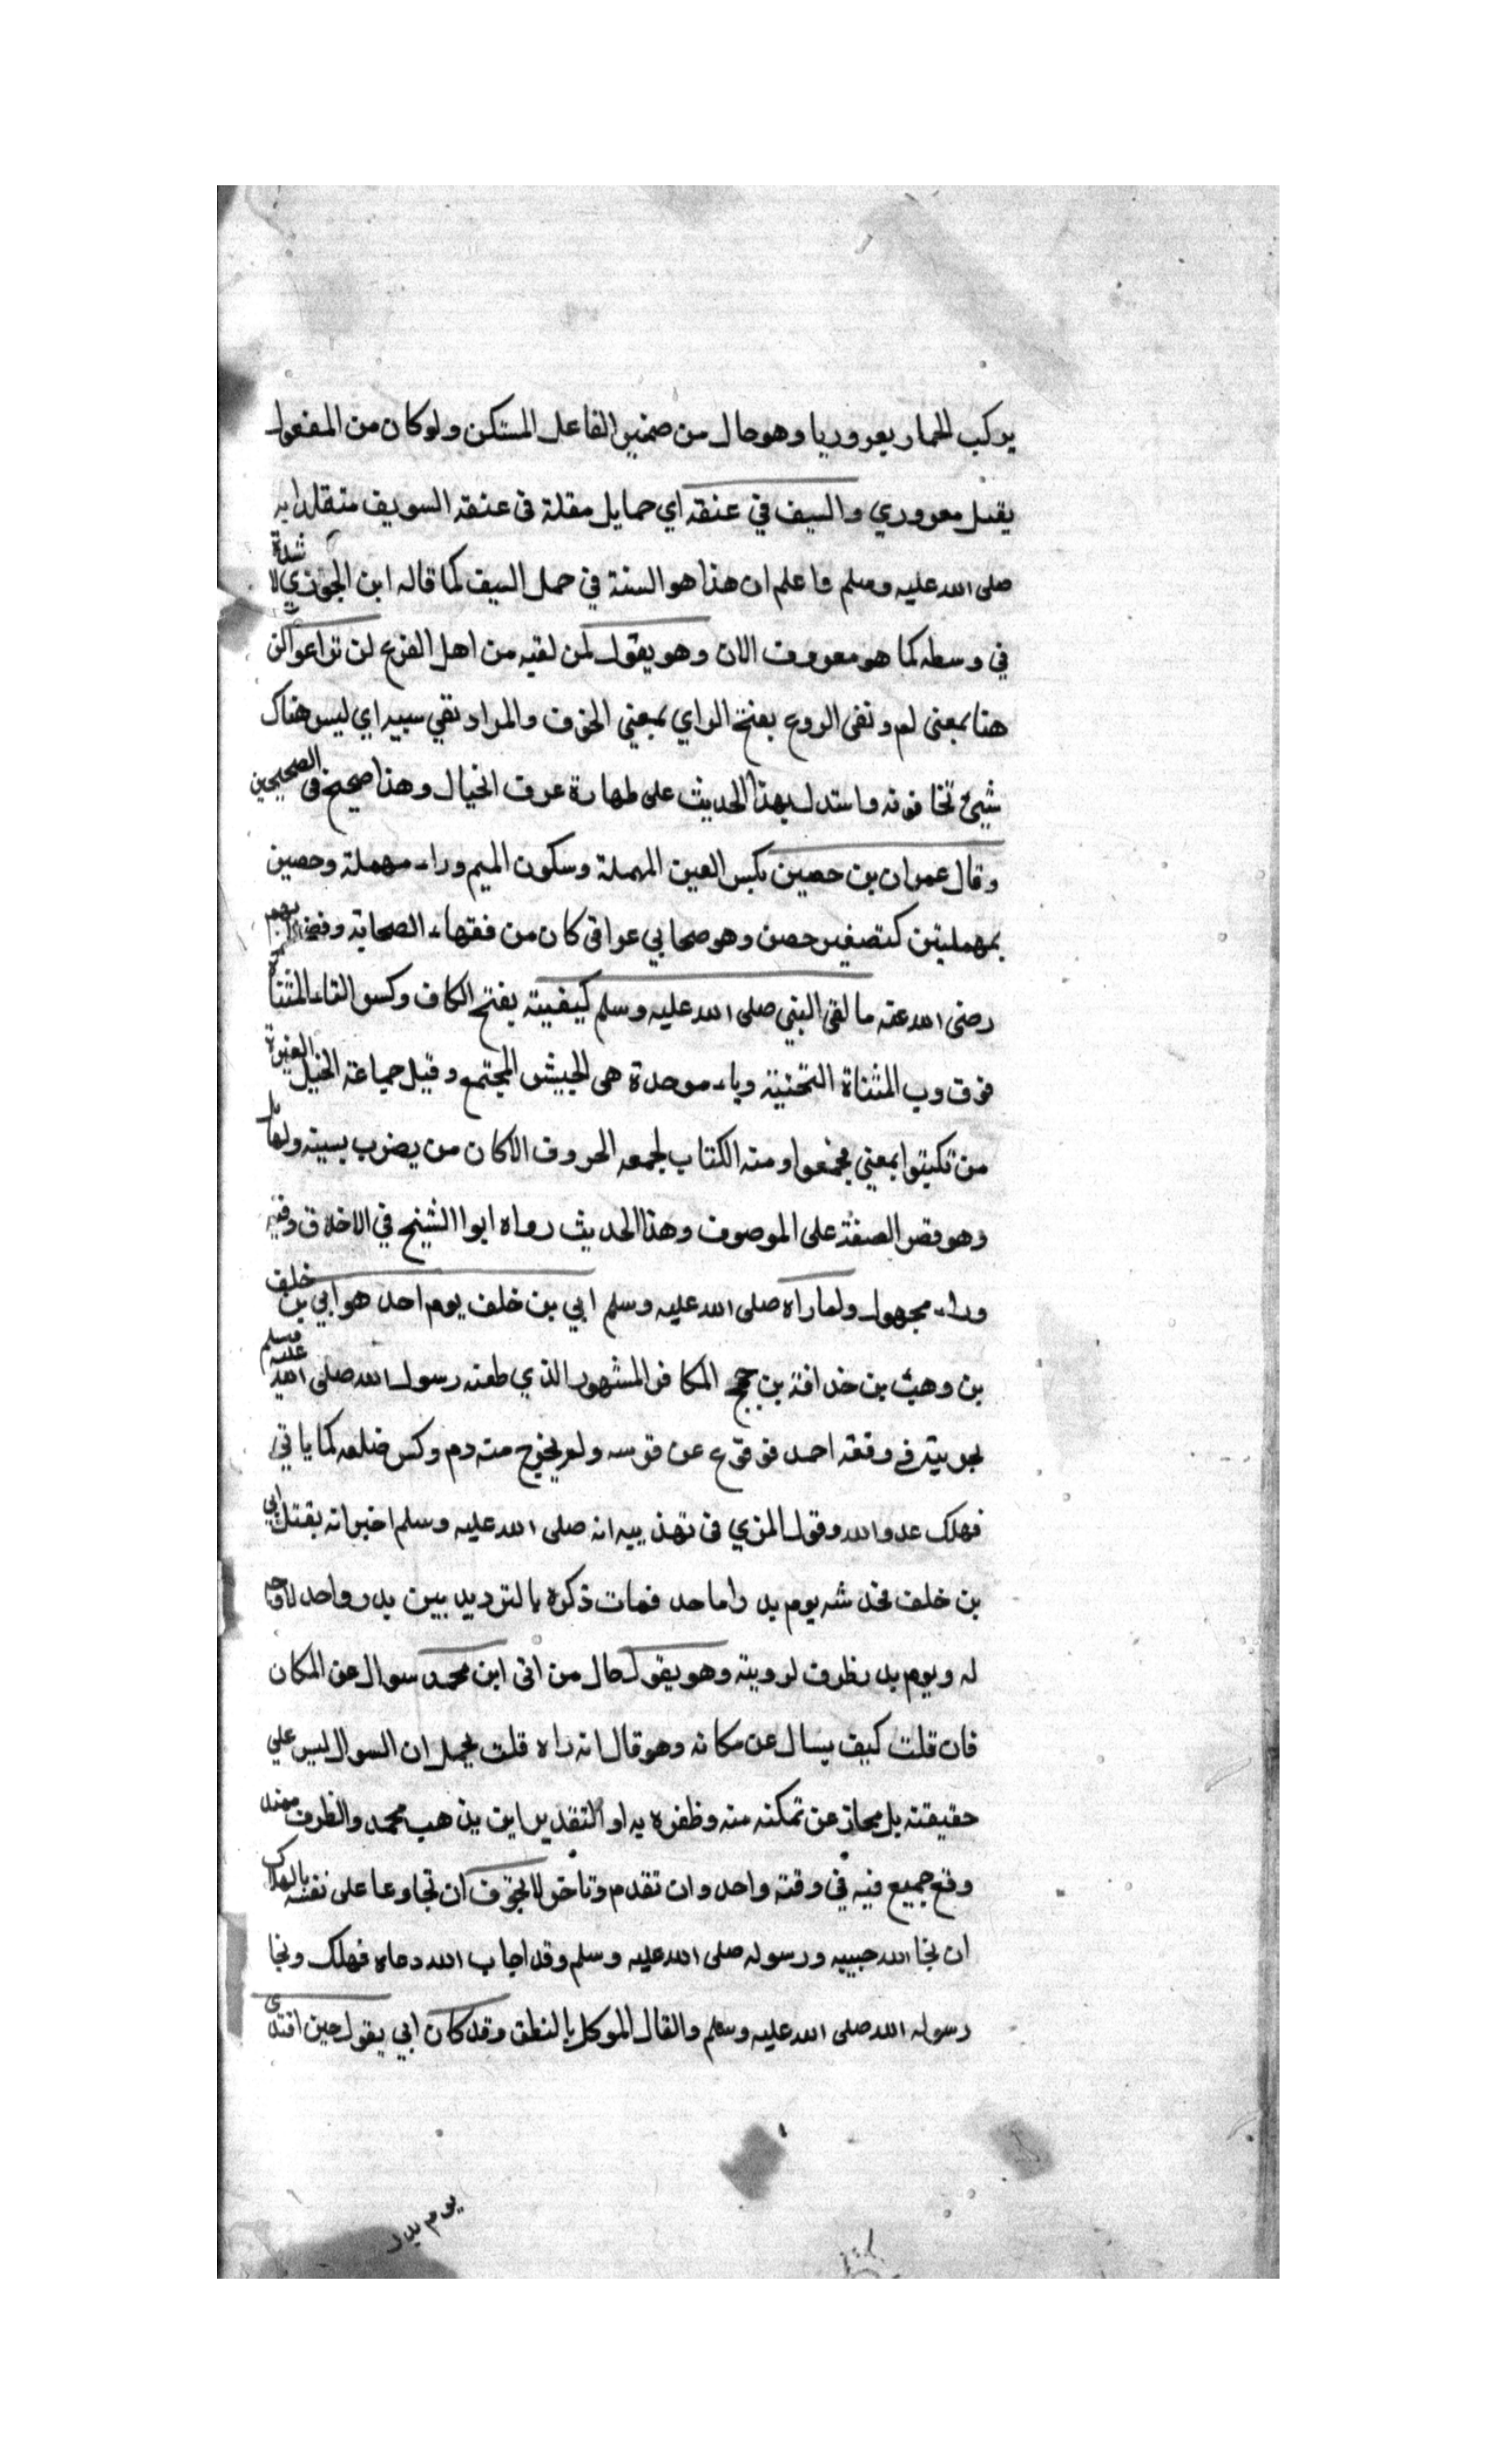 يركب الحمار يعروريا وهو حال من ضمير الفاعل المستكن ولو كان من المفعول
يقبل معروري والسيف في عنقه اي حمايل مقلة في عنقه السويف متقلدا به
صلى الله عليه وسلم فاعلم ان هذا هو السنة في حمل السيف كما قاله ابن الجوزي لا شده
في وسطه كما هو معروف الان وهو يقول لمن لقيه من اهل الفزع لن تراعوا لن
هنا بمعنى لم ونفى الروع بفتح الراي بمعني الخوف والمراد نفي سببه اي ليس هناك
شيئ تخافونه واستدل بهذا الحديث على طهارة عرف الخيال وهذا صحيح في الصحيحين
وقال عمران بن حصين بكسر العين المهملة وسكون الميم وراء مهملة وحصين
بمهملتين كتصغير حصن وهو صحابي عراقي كان من فقهاء الصحابة وفضلايهم
رضى الله عنه ما لقى النبي صلى الله عليه وسلم كيفيبة بفتح الكاف وكسر التاء المثناة
فوق وب المثناة التحتية وباء موحدة هى الجيش المجتمع وقيل جماعة الخيل المغيرة
من تكيتوا بمعني تجمعوا ومنه الكتاب لجمعه الحروف الا كان من يضرب بسيته ولها
وهو قصر الصفة على الموصوف وهذا الحديث رواه ابوا الشيخ في الاخلاق وفيه
وراء مجهول ولما راه صلى الله عليه وسلم ابي بن خلف يوم احد هو ابي بن خلف
بن وهب بن خدافة بن جمح الكافر المشهور الذي طعنه رسول الله صلى الله عليه وسلم
بجربيته في وقعة احد فوقع عن فرسه ولم يخرج منه دم وكسر ضلعه كما ياتي
فهلك عدو الله وقول المزي في تهذيبه انه صلى الله عليه وسلم اخبر انه يقتل ابي
بن خلف فخدشه يوم بدر اما حد فمات ذكره بالترديد بين بدر واحد لا وجه
له ويوم بدر ظرف لرويته وهو يقول حال من اتى ابن محمد سوال عن المكان
فان قلت كيف يسال عن مكانه وهو قال انه راه قلت يحمل ان السوال ليس علي
حقيقته بل مجاز عن تمكنه منه وظفره به او التقدير اين يذهب محمد والظرف ممتد
وقع جميع فيه في وقته واحد وان تقدم وتاخر لا نجوف ان نجا دعا على نفسه بالهلاك
ان نجا الله حبيبه ورسوله صلى الله عليه وسلم وقد اجاب الله دعاه فهلك ونجا
رسوله الله صلى الله عليه وسلم والقال الموكل بالنطق وقد كان ابي يقول حين افتدى
يوم بدر